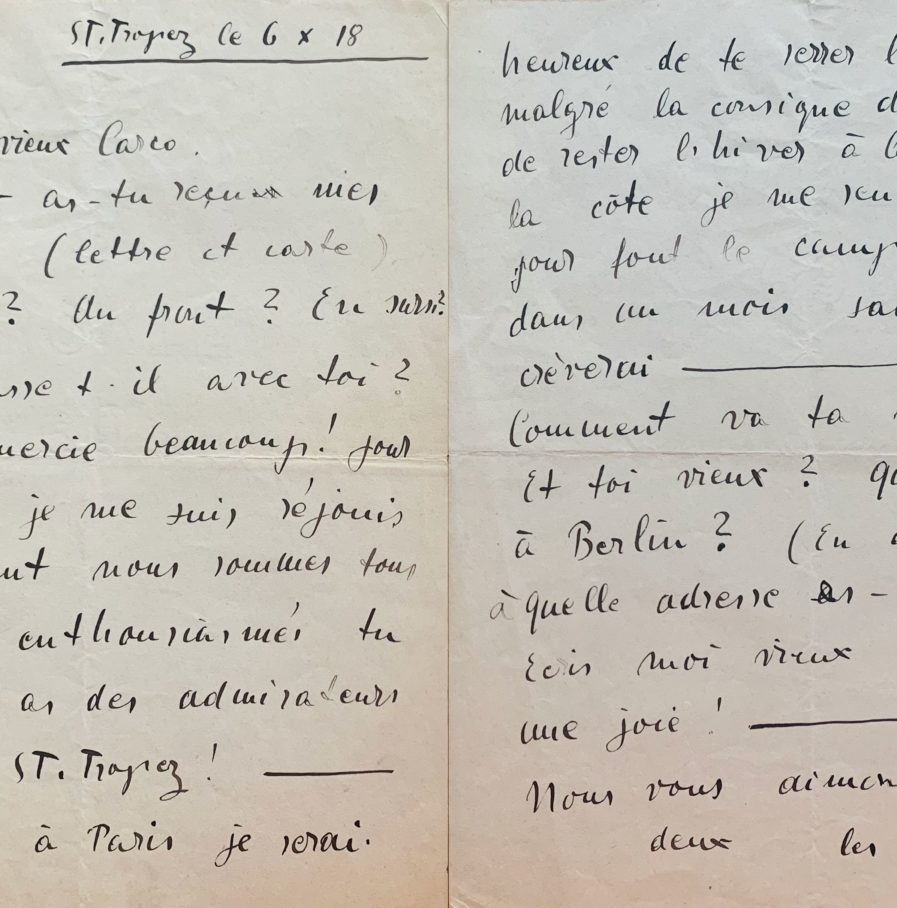 ST. Tropez le 6 x 18
vieux Carco.
- as-tu reçu mes
(lettre et carte)
? Au front ? En sursi?
sse t-il avec toi ?
mercie beaucoup! pour
je me suis réjouis
nt nous sommes tous
enthousiasmés tu
as des admirateurs
ST. Tropez !
à Paris je serai.
heureux de te serrer l
malgré la consigne d
de rester l'hiver à
la côte je me
jour fout le camp
dans un mois sa
crèverai
Comment va ta
Et toi vieux ? qu
à Berlin ? (En
à quelle adresse as-
Ecis moi vieux
une joie !
Nous vous aimon
deux les